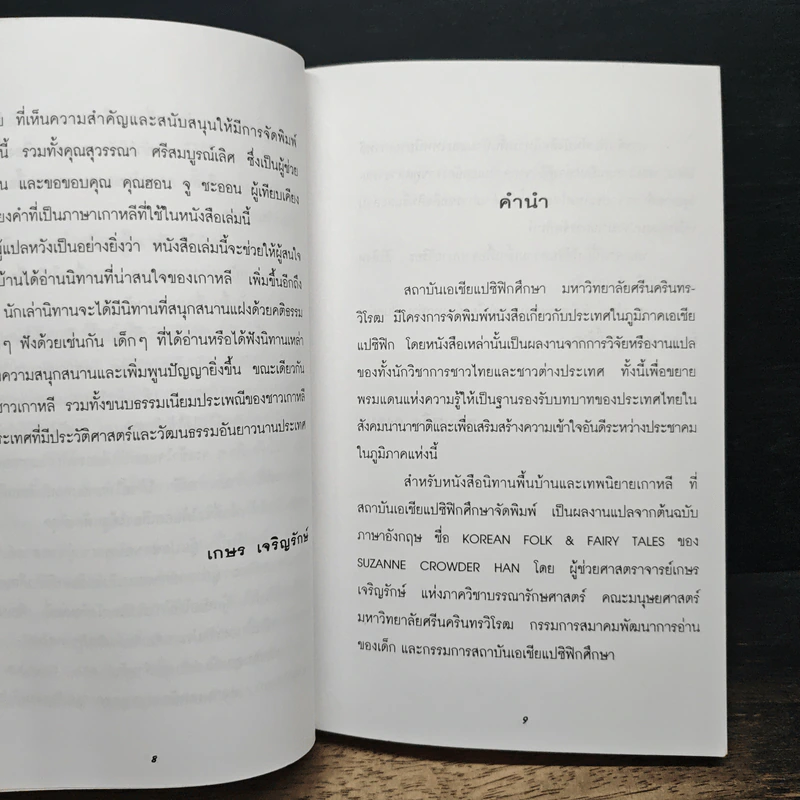 ที่เห็นความสำคัญและสนับสนุนให้มีการจัดพิมพ์
นี้ รวมทั้งคุณสุวรรณา ศรีสมบูรณ์เลิศ ซึ่งเป็นผู้ช่วย
น และขอขอบคุณ คุณฮอน จู ชะออน ผู้เทียบเคียง
ยงคำที่เป็นภาษาเกาหลีที่ใช้ในหนังสือเล่มนี้
ผู้แปลหวังเป็นอย่างยิ่งว่า หนังสือเล่มนี้จะช่วยให้ผู้สนใจ
บ้านได้อ่านนิทานที่น่าสนใจของเกาหลี เพิ่มขึ้นอีกถึง
นักเล่านิทานจะได้มีนิทานที่สนุกสนานแฝงด้วยคติธรรม
ๆ ฟังด้วยเช่นกัน เด็กๆ ที่ได้อ่านหรือได้ฟังนิทานเหล่า
ความสนุกสนานและเพิ่มพูนปัญญายิ่งขึ้น ขณะเดียวกัน
ชาวเกาหลี รวมทั้งขนบธรรมเนียมประเพณีของชาวเกาหลี
ระเทศที่มีประวัติศาสตร์และวัฒนธรรมอันยาวนานประเทศ
เกษร เจริญรักษ์
8
คำนำ
สถาบันเอเชียแปซิฟิกศึกษา มหาวิทยาลัยศรีนครินทร-
วิโรฒ มีโครงการจัดพิมพ์หนังสือเกี่ยวกับประเทศในภูมิภาคเอเชีย
แปซิฟิก โดยหนังสือเหล่านั้นเป็นผลงานจากการวิจัยหรืองานแปล
ของทั้งนักวิชาการชาวไทยและชาวต่างประเทศ ทั้งนี้เพื่อขยาย
พรมแดนแห่งความรู้ให้เป็นฐานรองรับบทบาทของประเทศไทยใน
สังคมนานาชาติและเพื่อเสริมสร้างความเข้าใจอันดีระหว่างประชาคม
ในภูมิภาคแห่งนี้
สำหรับหนังสือนิทานพื้นบ้านและเทพนิยายเกาหลี ที่
สถาบันเอเชียแปซิฟิกศึกษาจัดพิมพ์ เป็นผลงานแปลจากต้นฉบับ
ภาษาอังกฤษ ชื่อ KOREAN FOLK & FAIRY TALES ของ
SUZANNE CROWDER HAN โดย ผู้ช่วยศาสตราจารย์เกษร
เจริญรักษ์ แห่งภาควิชาบรรณารักษศาสตร์ คณะมนุษยศาสตร์
มหาวิทยาลัยศรีนครินทรวิโรฒ กรรมการสมาคมพัฒนาการอ่าน
ของเด็ก และกรรมการสถาบันเอเชียแปซิฟิกศึกษา
9